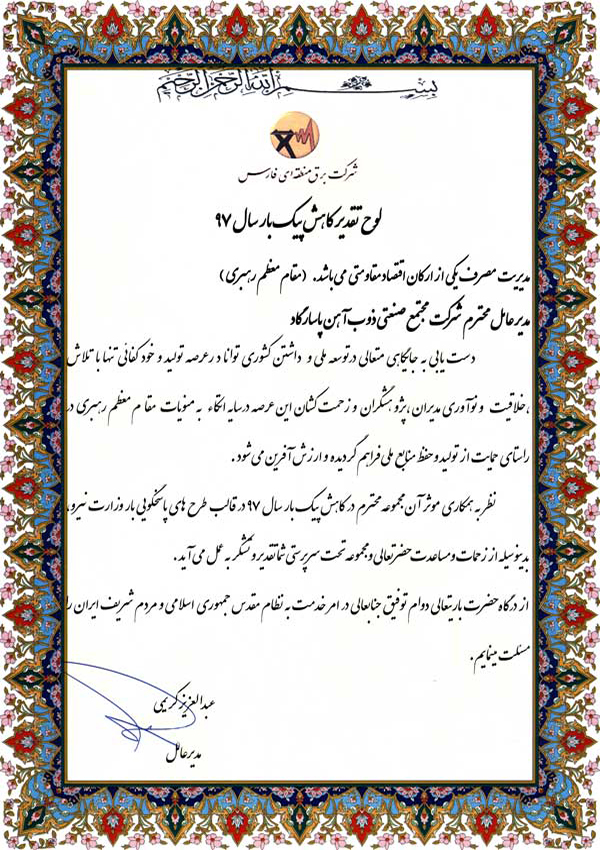 بسم الله الرحمن الرحیم
شرکت برق منطقه ای فارس
لوح تقدیر کاهش پیک بار سال ۹۷
مدیریت مصرف یکی از ارکان اقتصاد مقاومتی می باشد. (مقام معظم رهبری)
مدیرعامل محترم شرکت مجتمع صنعتی ذوب آهن پاسارگاد
دست یابی به جایگاهی متعالی در توسعه ملی و داشتن کشوری توانا در عرصه تولید و خودکفائی تنها با تلاش
،خلاقیت و نوآوری مدیران ،پژوهشگران و زحمت کشان این عرصه در سایه اتکاء به منویات مقام معظم رهبری در
راستای حمایت از تولید و حفظ منابع ملی فراهم گردیده و ارزش آفرین می شود.
نظر به همکاری موثر آن مجموعه محترم در کاهش پیک بار سال ۹۷ در قالب طرح های پاسخگویی بار وزارت نیرو،
بدینوسیله از زحمات و مساعدت حضرتعالی و مجموعه تحت سرپرستی شما تقدیر و تشکر به عمل می آید.
از درگاه حضرت باریتعالی دوام توفیق جنابعالی در امر خدمت به نظام مقدس جمهوری اسلامی و مردم شریف ایران را
مسئلت مینمایم.
عبدالعزیز کریمی
مدیرعامل